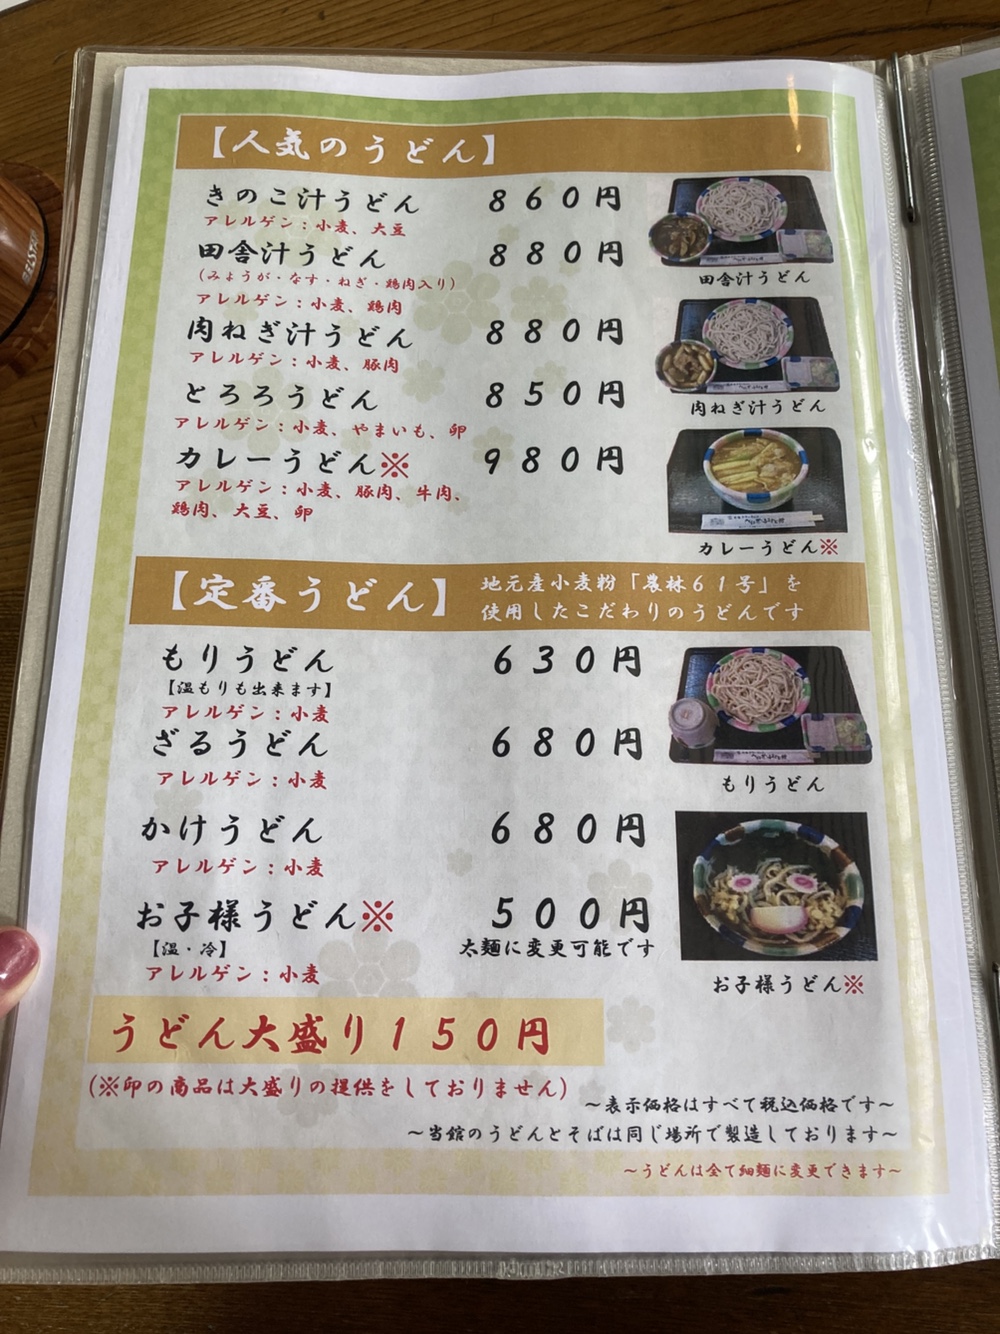 【人気のうどん】
きのこ汁うどん ８６０円
アレルゲン：小麦、大豆
田舎汁うどん ８８０円
（みょうが・なす・ねぎ・鶏肉入り）
アレルゲン：小麦、鶏肉
肉ねぎ汁うどん ８８０円
アレルゲン：小麦、豚肉
とろろうどん ８５０円
アレルゲン：小麦、やまいも、卵
カレーうどん※ ９８０円
アレルゲン：小麦、豚肉、牛肉、
鶏肉、大豆、卵
田舎汁うどん
肉ねぎ汁うどん
カレーうどん※
【定番うどん】
地元産小麦粉「農林６１号」を
使用したこだわりのうどんです
もりうどん ６３０円
【温もりも出来ます】
アレルゲン：小麦
ざるうどん ６８０円
アレルゲン：小麦
かけうどん ６８０円
アレルゲン：小麦
お子様うどん※ ５００円
【温・冷】 太麺に変更可能です
アレルゲン：小麦
もりうどん
お子様うどん※
うどん大盛り１５０円
（※印の商品は大盛りの提供をしておりません）
～表示価格はすべて税込価格です～
～当館のうどんとそばは同じ場所で製造しております～
～うどんは全て細麺に変更できます～